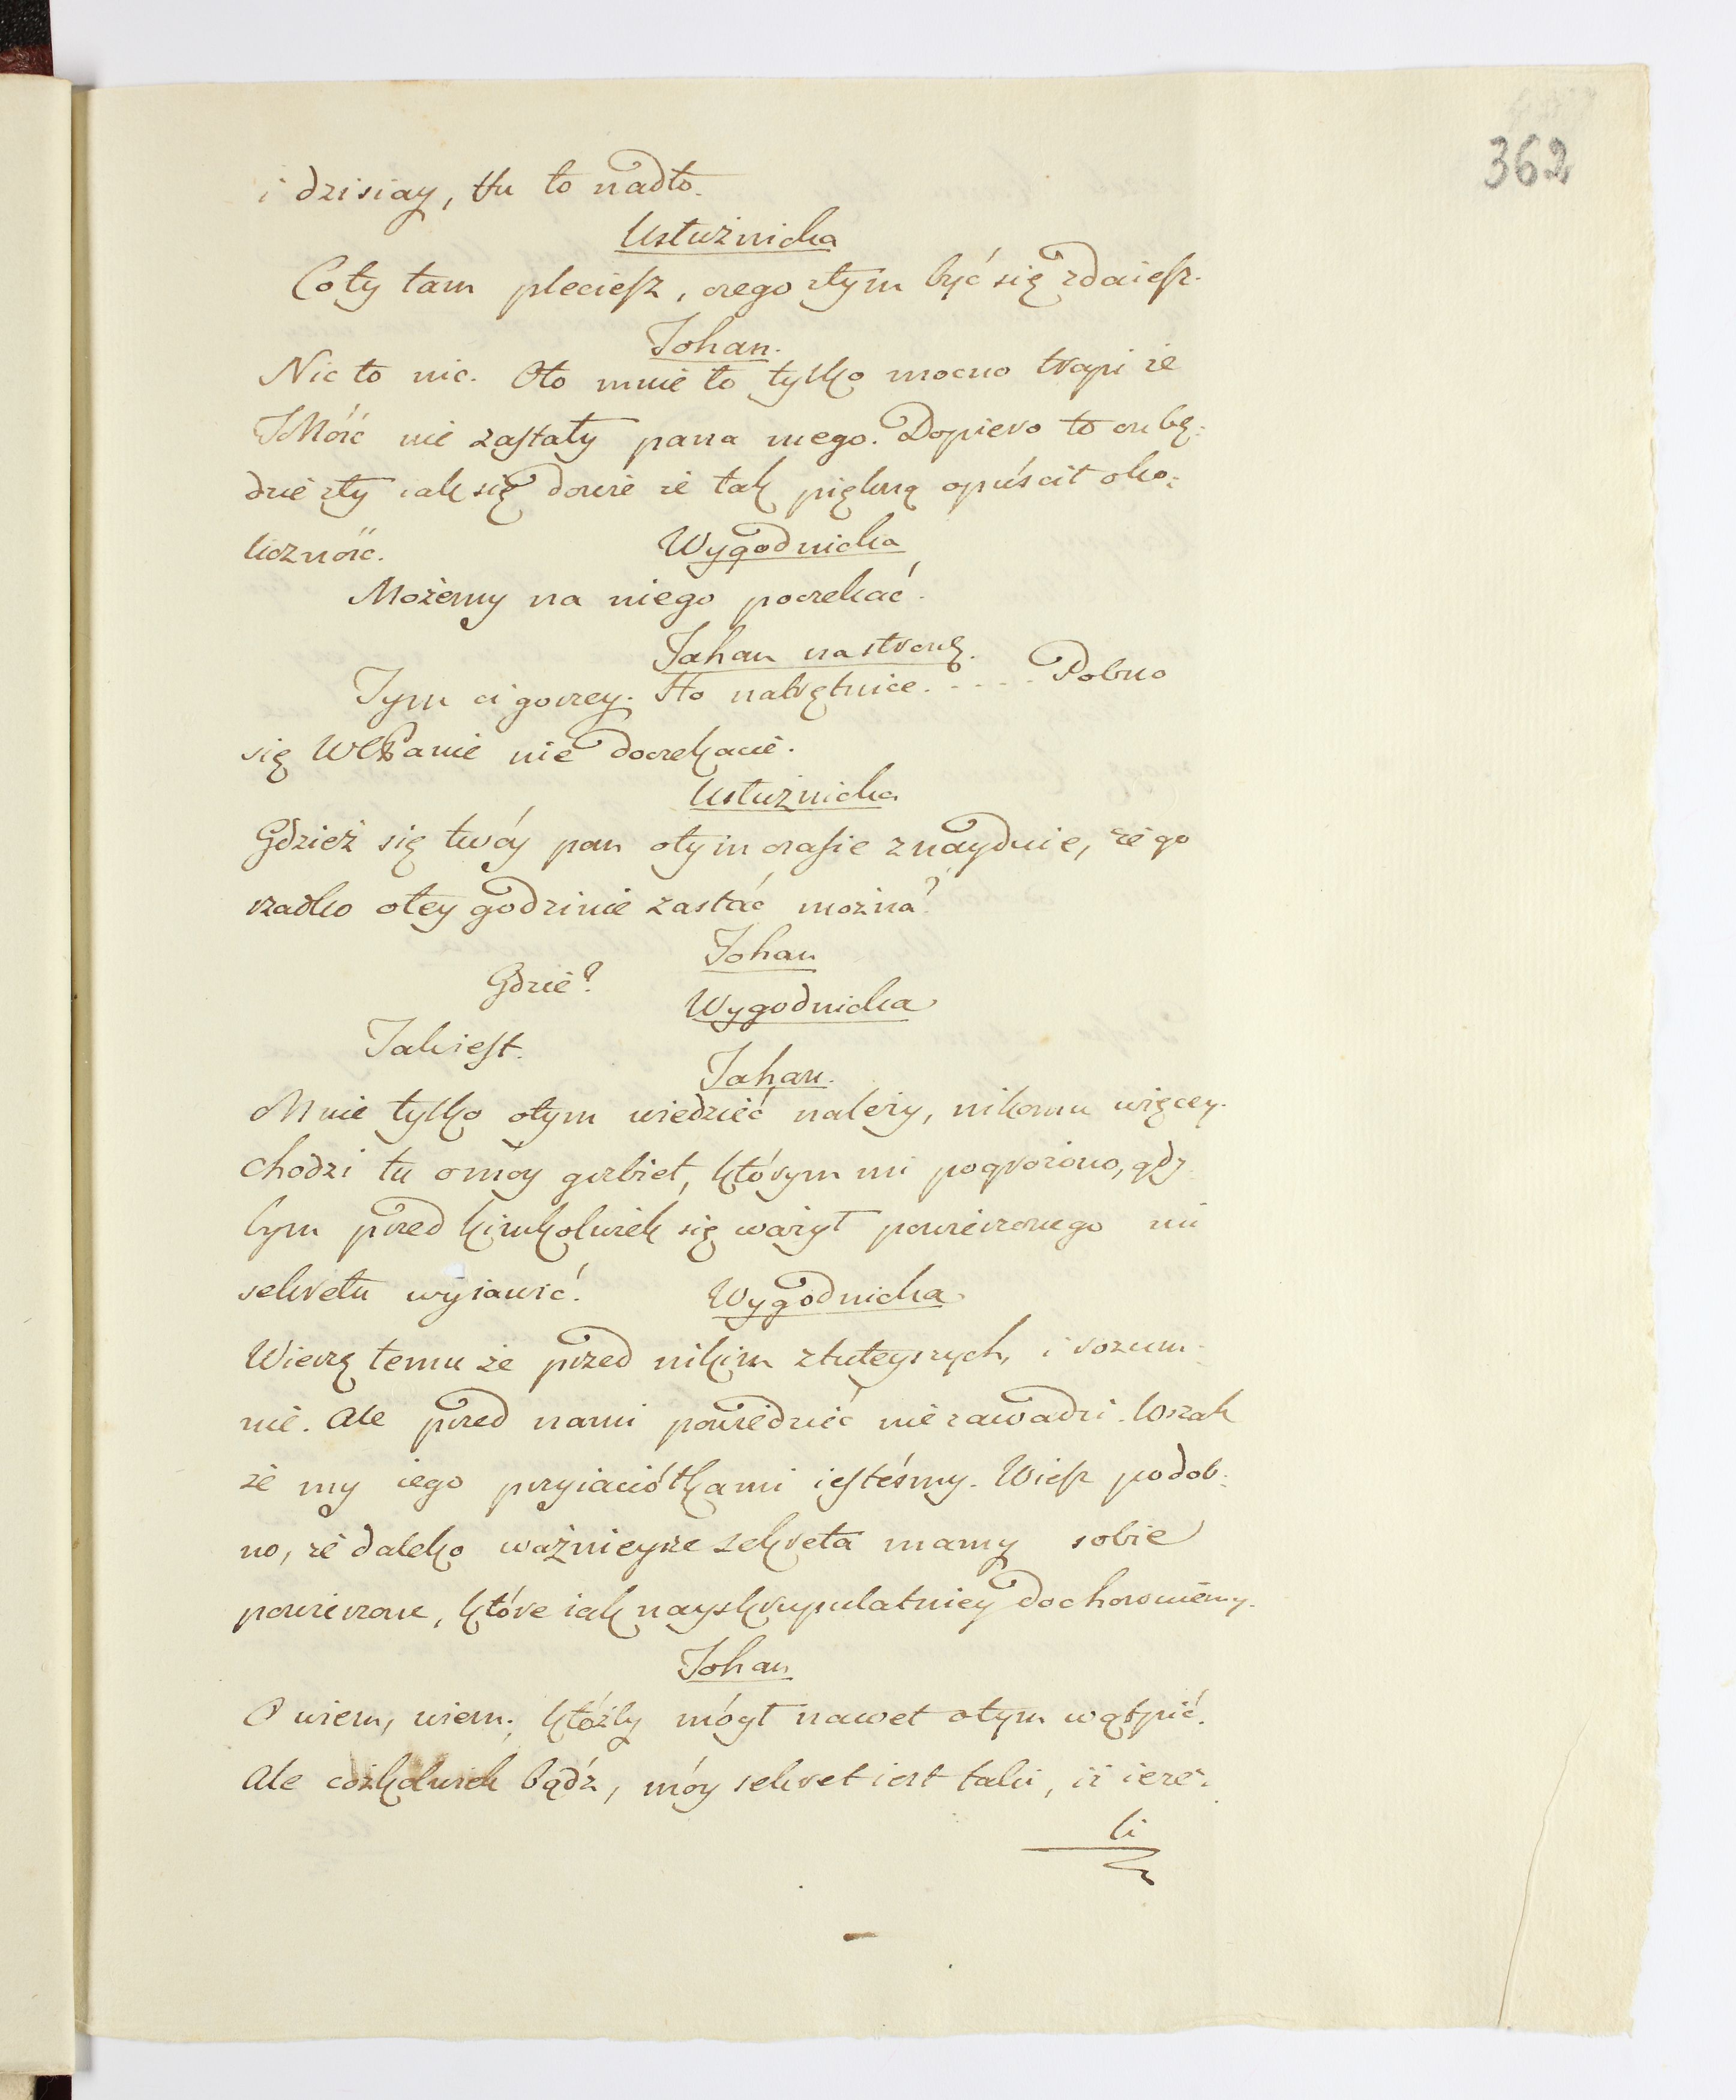 362
i dzisiay, tfu to nadto.
Usłużnicka
Co ty tam pleciesz, czego złym być się zdaiesz.
Johan.
Nic to nic. Oto mnie to tylko mocno trapi że
JMość nie zastały pana mego. Dopiero to on bę:
dzie zły iak się dowie że tak piękną opuścił oko:
liczność.
Wygodnicka
Możemy na niego poczekać.
Johan na stronę.
Tym ci gorzey. Ho natrętnice. - - - - Pobno
się WPanie nie doczekacie.
Usłużnicka
Gdzież się twóy pan otym czasie znayduie, że go
rzadko otey godzinie zastać można?
Johan
Gdzie?
Wygodnicka
Takiest.
Johan.
Mnie tylko otym wiedzieć należy, nikomu więcey.
chodzi tu o móy grzbiet, którym mi pogrożono, gdy
bym przed kimkolwiek się ważył powierzonego mi
sekretu wyiawić.
Wygodnicka
Wierzę temu że przed nikim ztuteyszych, i rozum:
nie. Ale przed nami powiedzieć nie zawadzi. Wszak
że my iego przyiaciółkami iesteśmy. Wiesz podob:
no, że daleko ważnieysze sekreta mamy sobie
powierzone, które iak nayskrupulatniey dochowuiemy.
Johan
O wiem, wiem; któżby mógł nawet otym wątpić.
Ale cożkolwiek bądź, móy sekret iest taki, iż ieże:
li